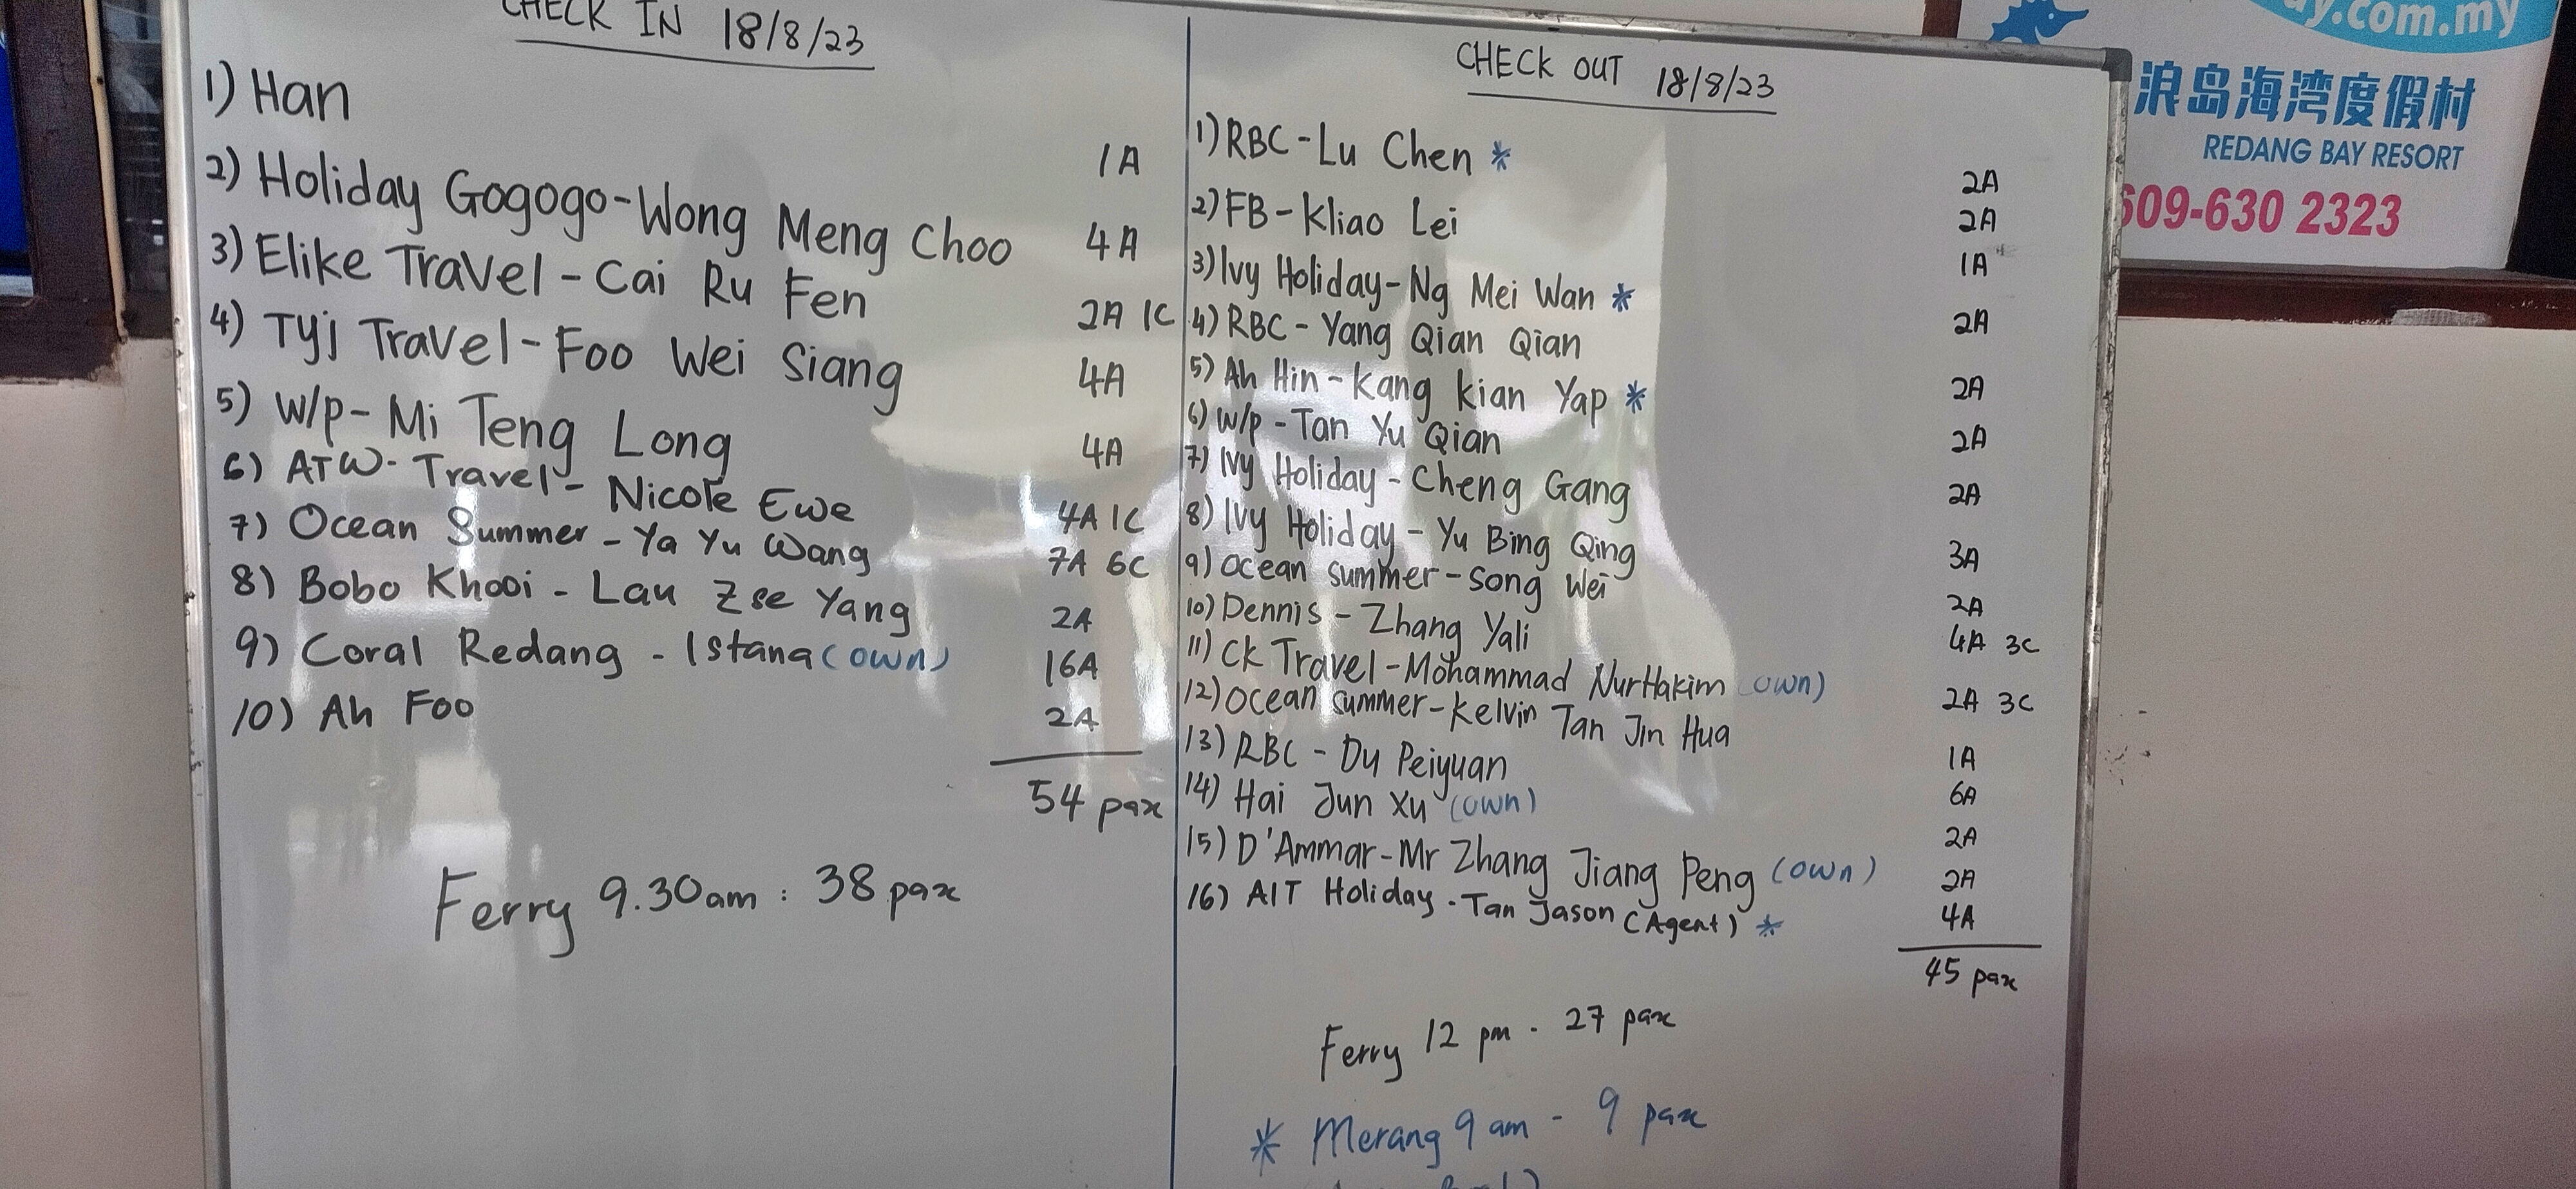 CHECK IN 18/8/23
1) Han 1A
2) Holiday Gogogo-Wong Meng Choo 4A
3) Elike Travel - Cai Ru Fen 2A 1C
4) Tyj Travel - Foo Wei Siang 4A
5) W/p - Mi Teng Long 4A
6) ATW - Travel - Nicole Ewe 4A 1C
7) Ocean Summer - Ya Yu Wang 7A 6C
8) Bobo Khooi - Lau Zse Yang 2A
9) Coral Redang - Istana (own) 16A
10) Ah Foo 2A
54 pax
Ferry 9.30am : 38 pax
CHECK OUT 18/8/23
1) RBC - Lu Chen * 2A
2) FB - Kliao Lei 2A
3) Ivy Holiday - Ng Mei Wan * 1A
4) RBC - Yang Qian Qian 2A
5) Ah Hin - Kang Kian Yap * 2A
6) W/p - Tan Yu Qian 2A
7) Ivy Holiday - Cheng Gang 2A
8) Ivy Holiday - Yu Bing Qing 3A
9) Ocean summer - Song Wei 2A
10) Dennis - Zhang Yali 4A 3C
11) CK Travel - Mohammad NurHakim (own) 2A 3C
12) Ocean summer - Kelvin Tan Jin Hua 1A
13) RBC - Du Peiyuan 6A
14) Hai Jun Xu (own) 2A
15) D'Ammar - Mr Zhang Jiang Peng (own) 2A
16) AIT Holiday - Tan Jason (Agent) * 4A
45 pax
Ferry 12 pm - 27 pax
* Merang 9 am - 9 pax
ay.com.my
浪岛海湾度假村
REDANG BAY RESORT
609-630 2323